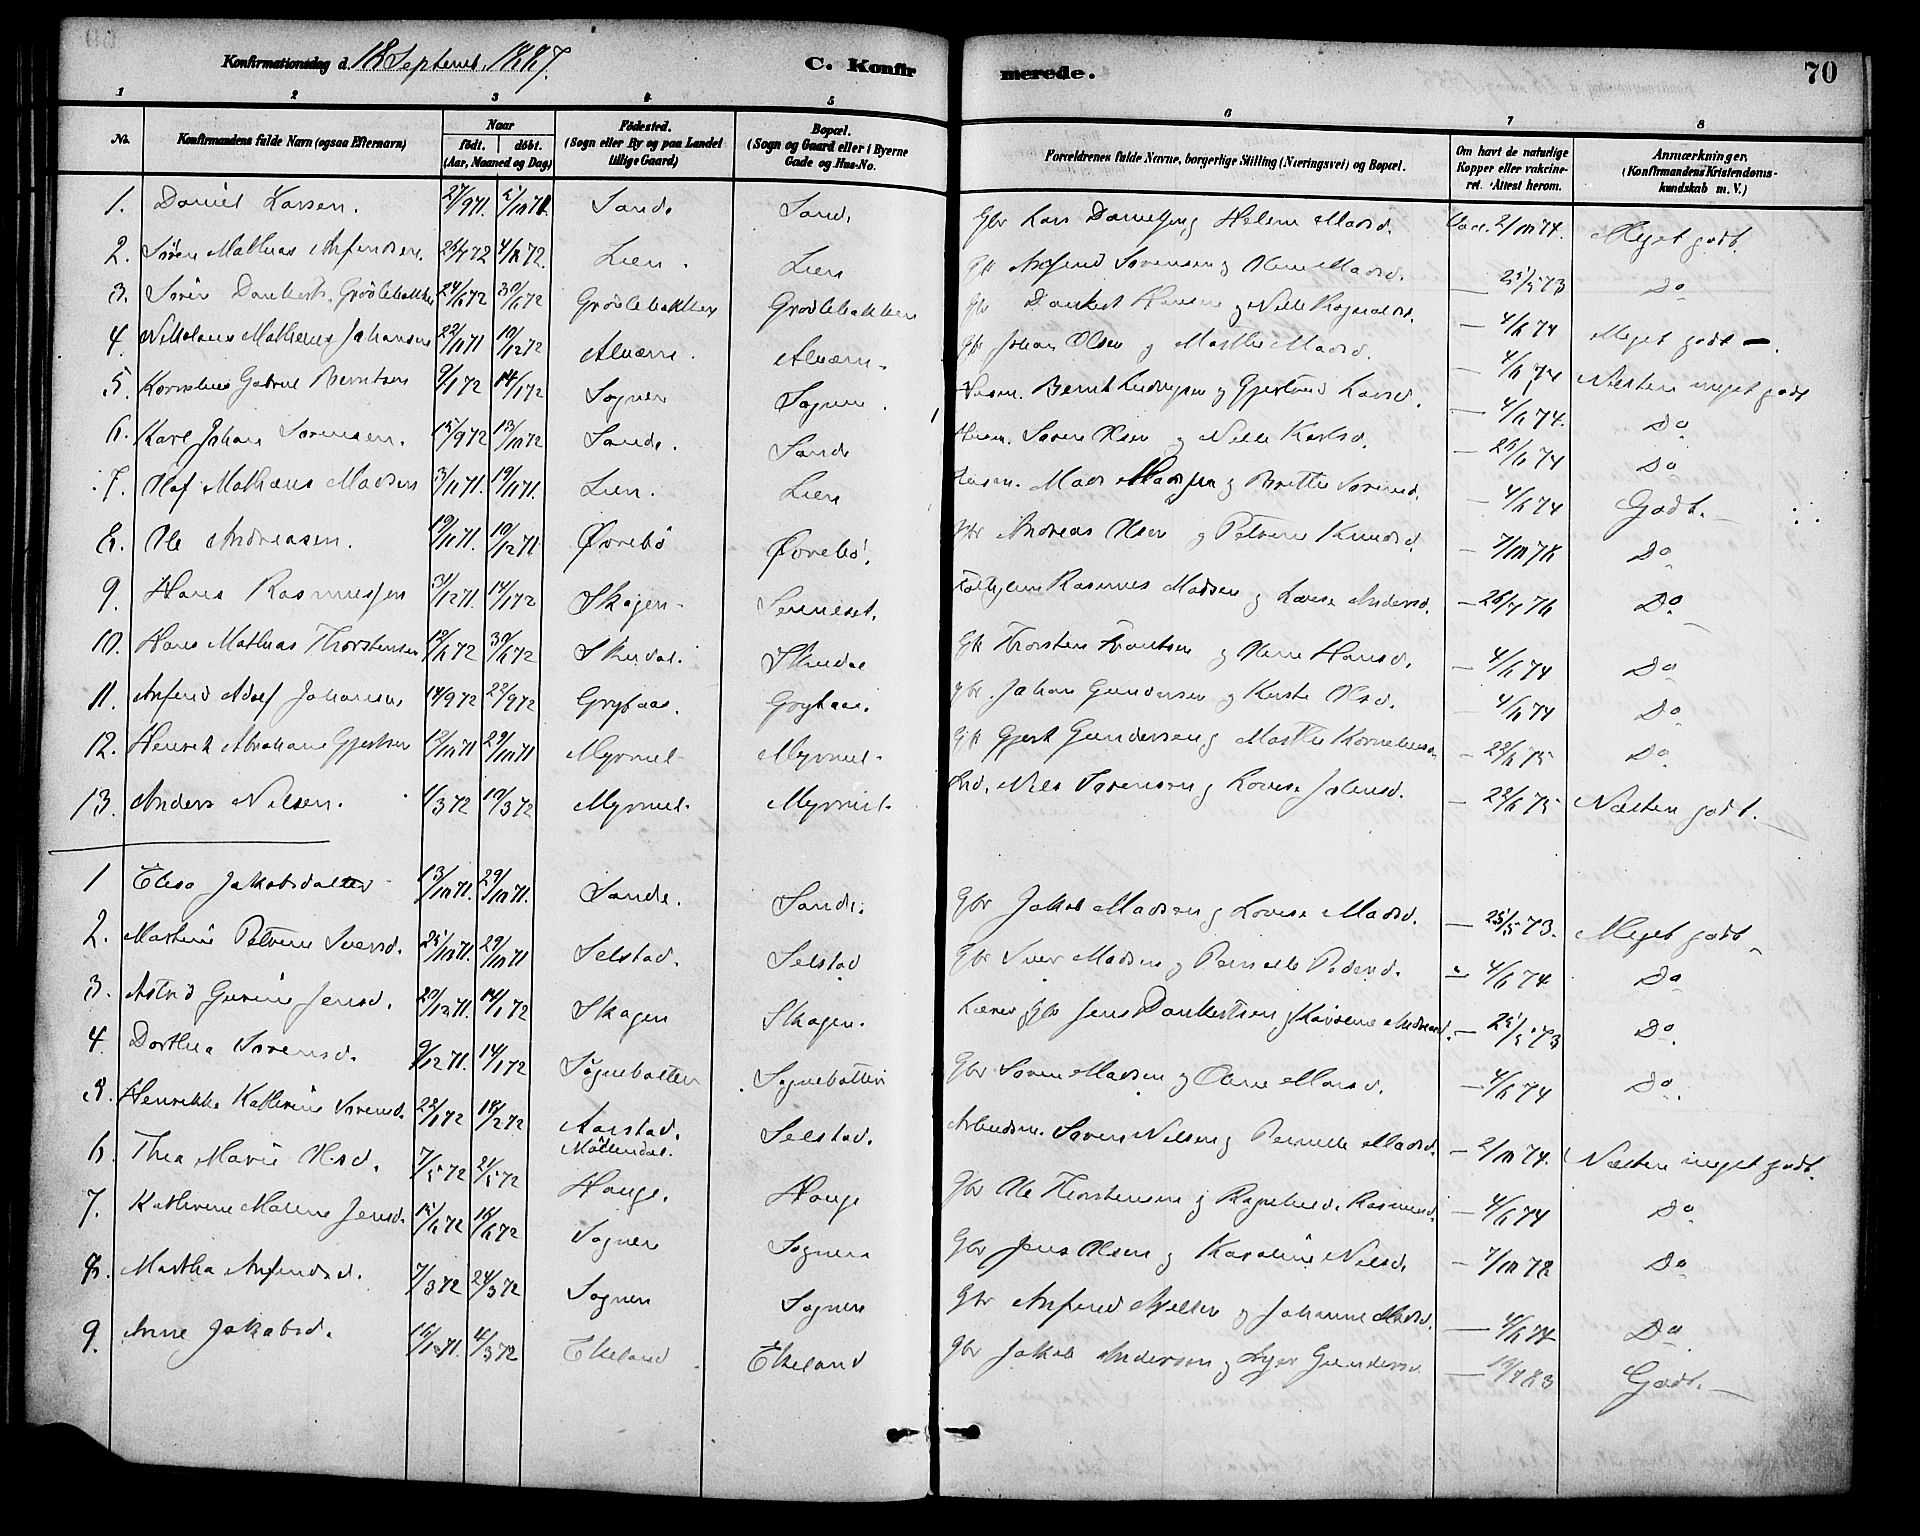 Konfirmationsdag d. 18 Septemb. 1887.
C. Konfirmerede.
70
1 2 3 4 5 6 7 8
No. Konfirmandens fulde Navn (ogsaa Efternavn) Naar født. døbt. (Aar, Maaned og Dag) Fødested. (Sogn eller By og paa Landet tillige Gaard) Bopæl. (Sogn og Gaard eller i Byerne Gade og Hus-No. Forældrenes fulde Navne, borgerlige Stilling (Næringsvei) og Bopæl. Om havt de naturlige Kopper eller vakcineret. Attest herom. Anmærkninger. (Konfirmandens Kristendomskundskab m. V.)
1. Daniel Larsen. 27/9 71. Sande Sande Gbr Lars Danielsen og Helene Madsd. Vac. 2/10 74. Meget godt.
2. Søren Mathias Anfindsen. 26/7 72 Lien. Lien Anfind Sørensen og Madsd. — 25/5 73 Do
3. Søren Dankerts. Grødlebakken 24/6 72 30/6 72 Grødlebakken Grødlebakken Gbr Dankert Hansen og — 4/6 74 Meget godt —.
4. Nikolaus Matheus Johansen 22/11 71 Alværn. Alværn. Gbr Johan Olsen og Marthe Madsd. — 4/6 74 Næsten meget godt
5. Kornelius Gabriel Berntsen 9/1 72 14/1 72 Sognen Sognen. Husm. Bernt Ludvigsen og Gjertrud Larsd. — 4/6 74. Do
6. Karl Johan Sørensen. 15/9 72 13/10 72 Sande. Sande Husm. Søren Olsen og Karlsd. — 26/6 74 Do
7. Olaf Mathæus Madsen 3/11 71. 19/11 71. Lien. Lien Husm. Mads Madsen og Berthe Sørensd. — 4/6 74 Godt. —
8. Ole Andreasen. 19/11 71. 10/12 71. Øvrebø Øvrebø. Gbr Andreas Olsen og Petrine Knudsd. — 7/10 78 Do
9. Hans Rasmussen 31/12 71. 14/1 72 Skagen. Senneset. Rasmus Madsen og Lovise Andersd. — 26/7 76 Do
10. Hans Mathias Thorstensen 12/6 72 30/6 72 Skudal. Skudal Thorsten og Hansd. — 4/6 74 Do
11. Anfind Adolf Johansen 14/9 72 22/9 72 Grytaas. Grytaas. Gbr. Johan Gundersen og Kirste Olsd. — 4/6 74 Do
12. Henrik Abraham Gjertsen 12/10 71 29/10 71 Myrmel. Myrmel. Gjert Gundersen og Marthe Korneliusd. — 22/6 75 Do.
13. Anders Nilsen. 1/3 72 10/3 72 Myrmel. Myrmel. Ind. Nils Sørensen og Lovise Johnsd. — 22/6 75 Næsten godt. —
1 Elisa Jakobsdatter 13/10 71. 29/10 71. Sande. Sande. Gbr Jakob Madsen og Lovise Madsd. — 25/5 73. Meget godt —
2. Martine Petrine Iversd. 25/10 71. 29/10 71 Selstad. Selstad Gbr Iver Madsen og Pernille Pedersd. — 4/6 74 Do
3. Astrid Gurine Jensd. 20/12 71. 14/1 72 Skagen Skagen. Lærer Gbr Jens Dankertsen og — 25/5 73 Do.
4. Dorthea Sørensd. 9/12 71. 14/1 72 Sognebotten Sognebotten Gbr Søren Madsen og Oline — 4/6 74 Do.
5. Henrikke Katherine Sørensd. 22/1 72 18/2 72 Aarstad. Møllendal. Selstad. Arbeidsm. Søren Nilsen og Pernille Madsd. — 2/10 74. Næsten meget godt.
6. Thea Marie Olsd. 7/5 72 21/5 72 Hauge. Hauge Gbr Ole Thorstensen og Ragnhild Rasmusd. — 4/6 74 Do
7. Katherine Malene Jensd. 15/6 72 16/6 72 Sognen Sognen Gbr Jens Olsen og Karoline Nilsd. — 7/10 78 Do
8. Martha Anfindsd. 7/3 72 24/3 72 Sognen Sognen Gbr Anfind og Johanne Madsd. — 4/6 74 Do
9. Anne Jakobsd. 16/12 71. 4/3 72 Ekeland. Ekeland Gbr Jakob Andersen og Gundersd. — 16/7 83 Godt. —